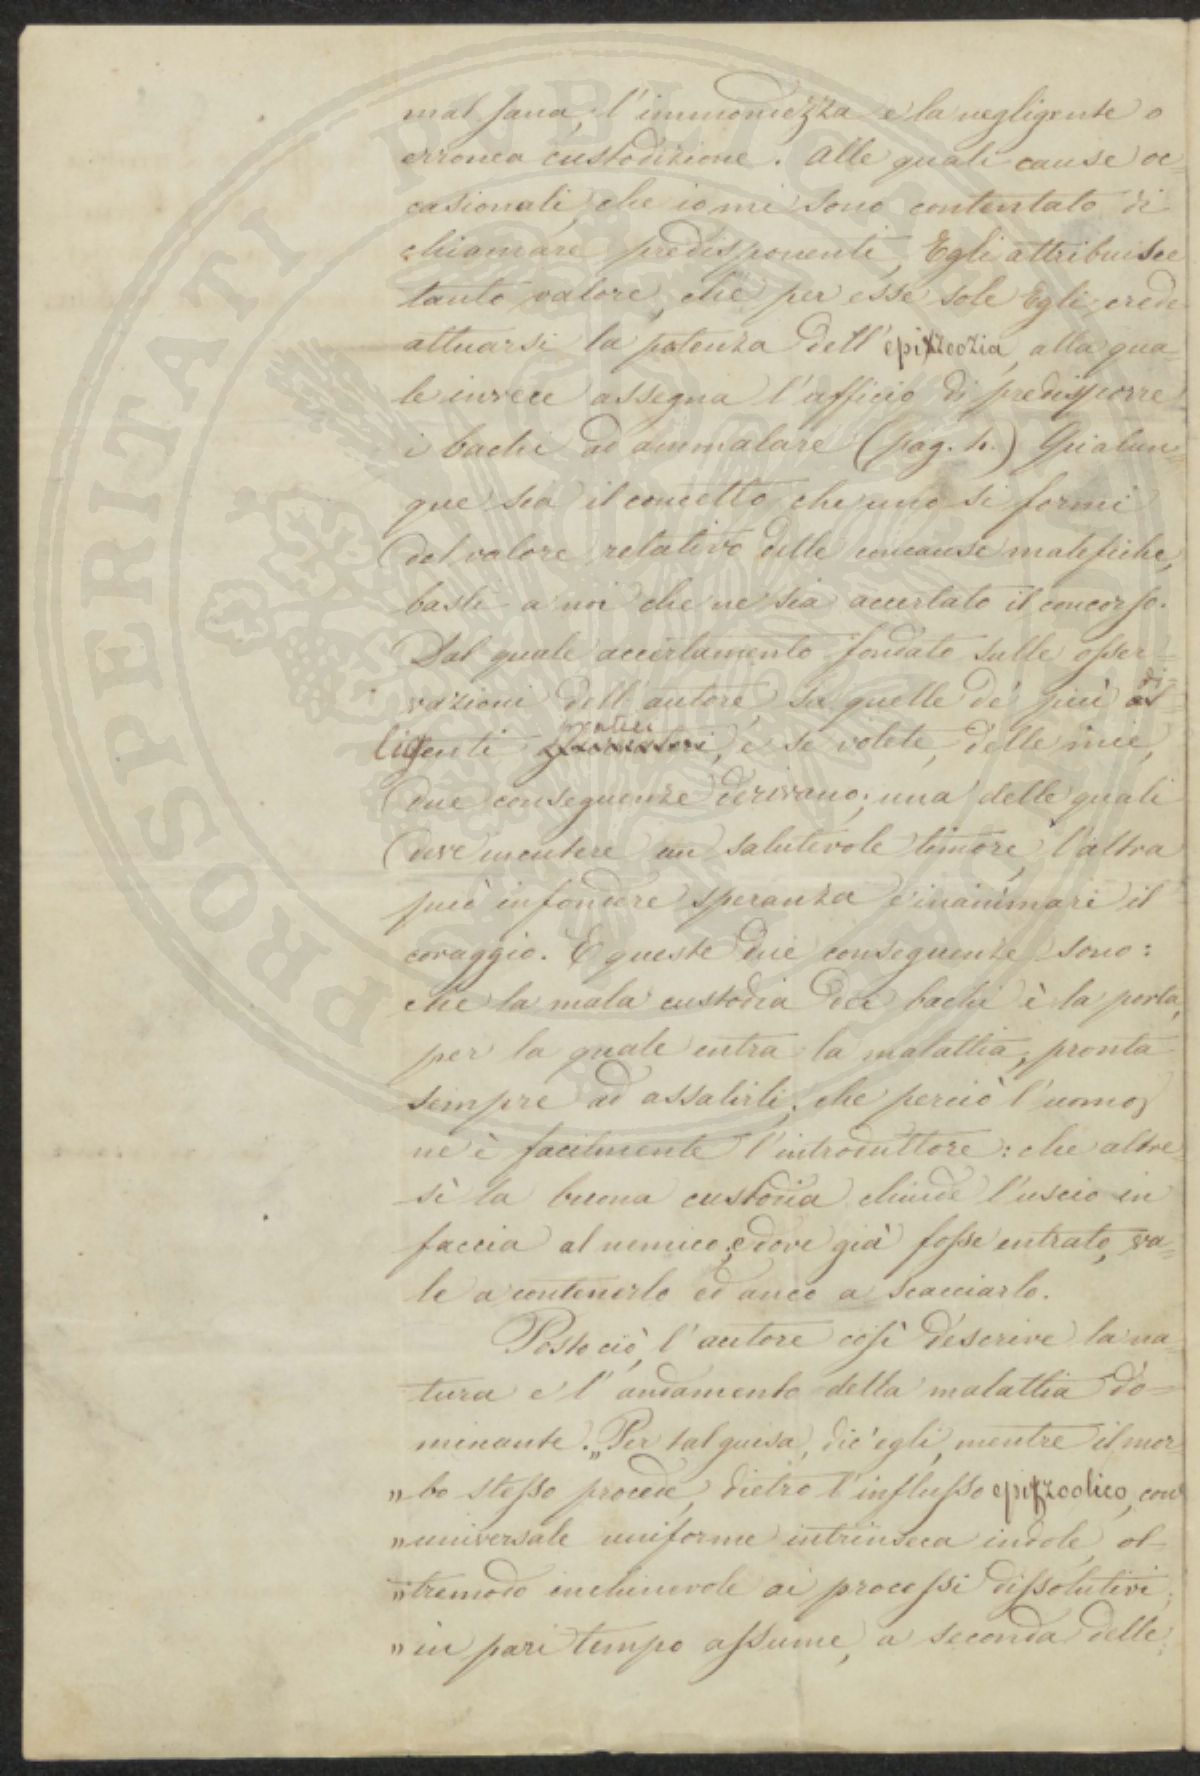 mal sana, l'immondezza e la negligente o
erronea custodizione. Alle quali cause oc-
casionali, che io mi sono contentato di
chiamare predisponenti, Egli attribuisce
tanto valore, che per esse sole Egli crede
attuarsi la potenza dell'epizoozia, alla qua-
le invece assegna l'ufficio di predisporre
i bachi ad ammalare (pag. 4.) Qualun-
que sia il concetto che uno si formi
del valore relativo delle concause malefiche,
basti a noi che ne sia accertato il concorso.
Dal quale accertamento fondato sulle osser-
vazioni dell'autore, su quelle de' più di-
ligenti pratici, e se volete, delle mie,
due conseguenze derivano; una delle quali
deve incutere un salutevole timore, l'altra
può infondere speranza e inanimare il
coraggio. E queste due conseguenze sono:
che la mala custodia dei bachi è la porta,
per la quale entra la malattia, pronta
sempre ad assalirli; che perciò l'uomo
ne è facilmente l'introduttore: che altre-
sì la buona custodia chiude l'uscio in
faccia al nemico, e dove già fosse entrato, va-
le a contenerlo ed anco a scacciarlo.
Posto ciò, l'autore così descrive la na-
tura e l'andamento della malattia do-
minante. „Per tal guisa, dic'egli, mentre il mor-
„bo stesso procede, dietro l'influsso epizootico, con
„universale uniforme intrinseca indole, ol-
„tremodo inchinevole ai processi dissolutivi;
„in pari tempo assume, a seconda delle
PROSPERITATI PUBLICAE